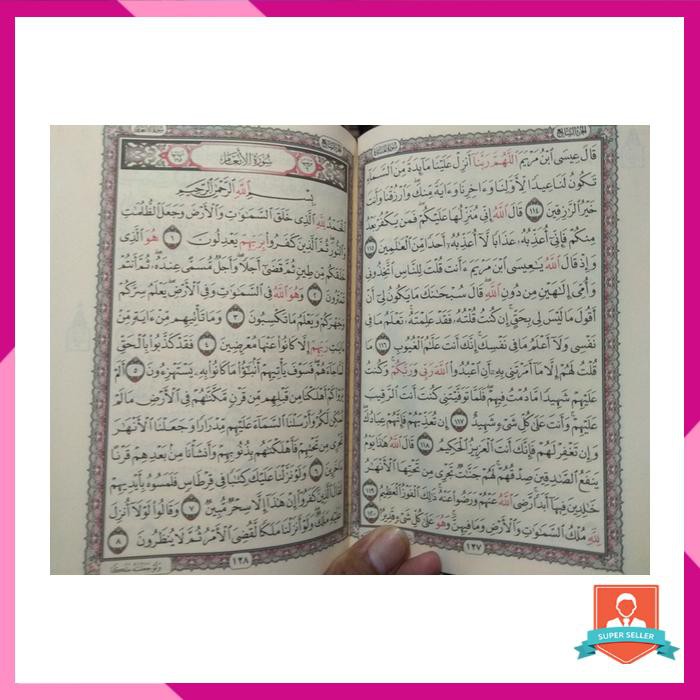 الجزء السابع
سورة المائدة
قَالَ عِيسَى ابْنُ مَرْيَمَ اللَّهُمَّ رَبَّنَا أَنزِلْ عَلَيْنَا مَائِدَةً مِّنَ السَّمَاءِ
تَكُونُ لَنَا عِيدًا لِّأَوَّلِنَا وَءَاخِرِنَا وَءَايَةً مِّنكَ وَارْزُقْنَا وَأَنتَ
خَيْرُ الرَّٰزِقِينَ ١١٤ قَالَ اللَّهُ إِنِّي مُنَزِّلُهَا عَلَيْكُمْ فَمَن يَكْفُرْ بَعْدُ
مِنكُمْ فَإِنِّي أُعَذِّبُهُ عَذَابًا لَّا أُعَذِّبُهُ أَحَدًا مِّنَ الْعَٰلَمِينَ ١١٥
وَإِذْ قَالَ اللَّهُ يَٰعِيسَى ابْنَ مَرْيَمَ ءَأَنتَ قُلْتَ لِلنَّاسِ اتَّخِذُونِي
وَأُمِّيَ إِلَٰهَيْنِ مِن دُونِ اللَّهِ قَالَ سُبْحَٰنَكَ مَا يَكُونُ لِي أَنْ
أَقُولَ مَا لَيْسَ لِي بِحَقٍّ إِن كُنتُ قُلْتُهُ فَقَدْ عَلِمْتَهُ تَعْلَمُ مَا فِي
نَفْسِي وَلَا أَعْلَمُ مَا فِي نَفْسِكَ إِنَّكَ أَنتَ عَلَّٰمُ الْغُيُوبِ ١١٦ مَا
قُلْتُ لَهُمْ إِلَّا مَا أَمَرْتَنِي بِهِ أَنِ اعْبُدُوا اللَّهَ رَبِّي وَرَبَّكُمْ وَكُنتُ
عَلَيْهِمْ شَهِيدًا مَّا دُمْتُ فِيهِمْ فَلَمَّا تَوَفَّيْتَنِي كُنتَ أَنتَ الرَّقِيبَ
عَلَيْهِمْ وَأَنتَ عَلَىٰ كُلِّ شَيْءٍ شَهِيدٌ ١١٧ إِن تُعَذِّبْهُمْ فَإِنَّهُمْ عِبَادُكَ
وَإِن تَغْفِرْ لَهُمْ فَإِنَّكَ أَنتَ الْعَزِيزُ الْحَكِيمُ ١١٨ قَالَ اللَّهُ هَٰذَا يَوْمُ
يَنفَعُ الصَّٰدِقِينَ صِدْقُهُمْ لَهُمْ جَنَّٰتٌ تَجْرِي مِن تَحْتِهَا الْأَنْهَٰرُ
خَٰلِدِينَ فِيهَا أَبَدًا رَّضِيَ اللَّهُ عَنْهُمْ وَرَضُوا عَنْهُ ذَٰلِكَ الْفَوْزُ الْعَظِيمُ ١١٩
لِلَّهِ مُلْكُ السَّمَٰوَٰتِ وَالْأَرْضِ وَمَا فِيهِنَّ وَهُوَ عَلَىٰ كُلِّ شَيْءٍ قَدِيرٌ ١٢٠
١٢٧
سُورَةُ الْأَنْعَامِ
بِسْمِ اللَّهِ الرَّحْمَٰنِ الرَّحِيمِ
الْحَمْدُ لِلَّهِ الَّذِي خَلَقَ السَّمَٰوَٰتِ وَالْأَرْضَ وَجَعَلَ الظُّلُمَٰتِ
وَالنُّورَ ثُمَّ الَّذِينَ كَفَرُوا بِرَبِّهِمْ يَعْدِلُونَ ١ هُوَ الَّذِي
خَلَقَكُم مِّن طِينٍ ثُمَّ قَضَىٰ أَجَلًا وَأَجَلٌ مُّسَمًّى عِندَهُ ثُمَّ أَنتُمْ
تَمْتَرُونَ ٢ وَهُوَ اللَّهُ فِي السَّمَٰوَٰتِ وَفِي الْأَرْضِ يَعْلَمُ سِرَّكُمْ
وَجَهْرَكُمْ وَيَعْلَمُ مَا تَكْسِبُونَ ٣ وَمَا تَأْتِيهِم مِّنْ ءَايَةٍ مِّنْ
ءَايَٰتِ رَبِّهِمْ إِلَّا كَانُوا عَنْهَا مُعْرِضِينَ ٤ فَقَدْ كَذَّبُوا بِالْحَقِّ
لَمَّا جَاءَهُمْ فَسَوْفَ يَأْتِيهِمْ أَنبَٰٓؤُا مَا كَانُوا بِهِ يَسْتَهْزِءُونَ ٥ أَلَمْ
يَرَوْا كَمْ أَهْلَكْنَا مِن قَبْلِهِم مِّن قَرْنٍ مَّكَّنَّٰهُمْ فِي الْأَرْضِ مَا لَمْ
نُمَكِّن لَّكُمْ وَأَرْسَلْنَا السَّمَاءَ عَلَيْهِم مِّدْرَارًا وَجَعَلْنَا الْأَنْهَٰرَ
تَجْرِي مِن تَحْتِهِمْ فَأَهْلَكْنَٰهُم بِذُنُوبِهِمْ وَأَنشَأْنَا مِن بَعْدِهِمْ قَرْنًا
ءَاخَرِينَ ٦ وَلَوْ نَزَّلْنَا عَلَيْكَ كِتَٰبًا فِي قِرْطَاسٍ فَلَمَسُوهُ بِأَيْدِيهِمْ
لَقَالَ الَّذِينَ كَفَرُوا إِنْ هَٰذَا إِلَّا سِحْرٌ مُّبِينٌ ٧ وَقَالُوا لَوْلَا أُنزِلَ
عَلَيْهِ مَلَكٌ وَلَوْ أَنزَلْنَا مَلَكًا لَّقُضِيَ الْأَمْرُ ثُمَّ لَا يُنظَرُونَ ٨
١٢٨
وَلَوْ جَعَلْنَٰهُ مَلَكًا
SUPER SELLER